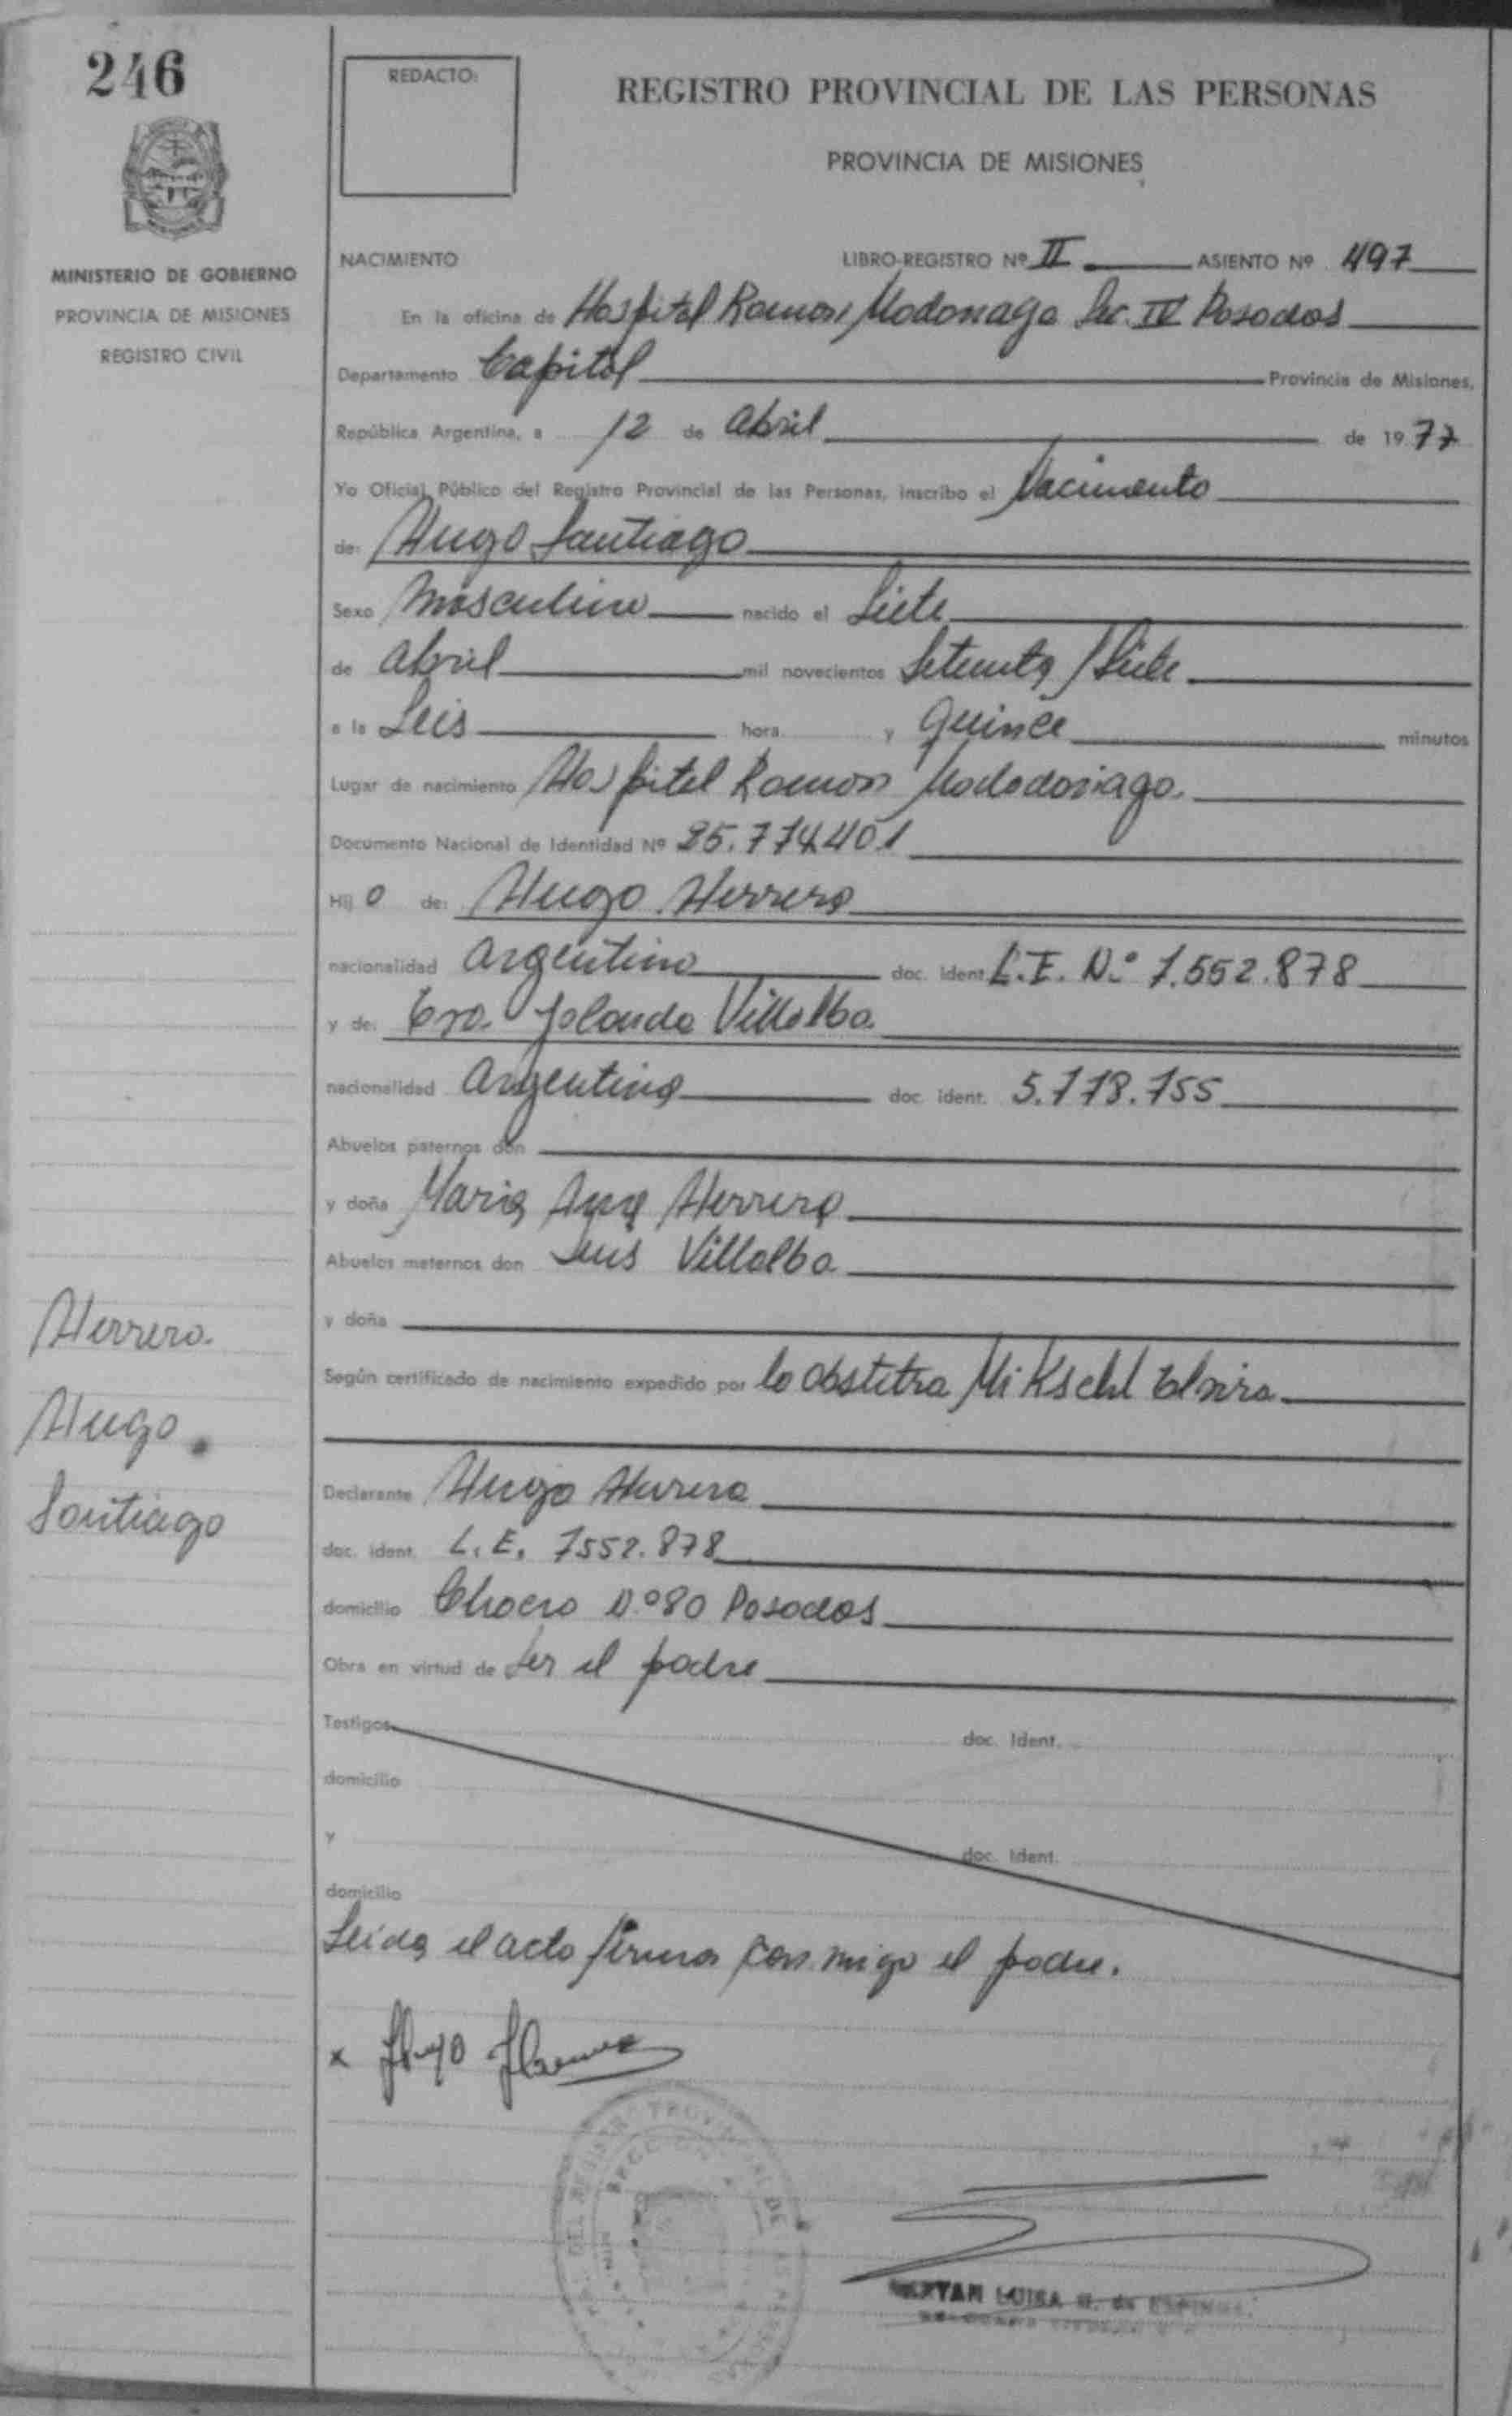 246
REDACTO:
REGISTRO PROVINCIAL DE LAS PERSONAS
PROVINCIA DE MISIONES
MINISTERIO DE GOBIERNO
PROVINCIA DE MISIONES
REGISTRO CIVIL
NACIMIENTO LIBRO-REGISTRO Nº II ASIENTO Nº 497
En la oficina de Hospital Ramon Madonaga Sec. IV Posadas
Departamento Capital Provincia de Misiones,
República Argentina, a 12 de abril de 1977
Yo Oficial Público del Registro Provincial de las Personas, inscribo el Nacimiento
de: Hugo Santiago
Sexo Masculino nacido el Siete
de abril mil novecientos Setenta / Siete
a la Seis hora y quince minutos
Lugar de nacimiento Hospital Ramon
Documento Nacional de Identidad Nº 25.774.401
Hij o de: Hugo Herrera
nacionalidad argentino doc. Ident. L.E. N.º 7.552.878
y de: Yolanda Villalba
nacionalidad argentina doc. ident. 5.118.155
Abuelos paternos don
y doña Maria Ana Herrera
Abuelos maternos don Luis Villalba
y doña
Según certificado de nacimiento expedido por la obstetra Elvira
Declarante Hugo Herrera
doc. ident. L.E. 7552.878
domicilio N.º 80 Posadas
Obra en virtud de ser el padre
Testigos doc. Ident.
domicilio
y doc. Ident.
domicilio
Leida el acta firma conmigo el padre.
x Hugo Herrera
LUISA
Herrera.
Hugo.
Santiago